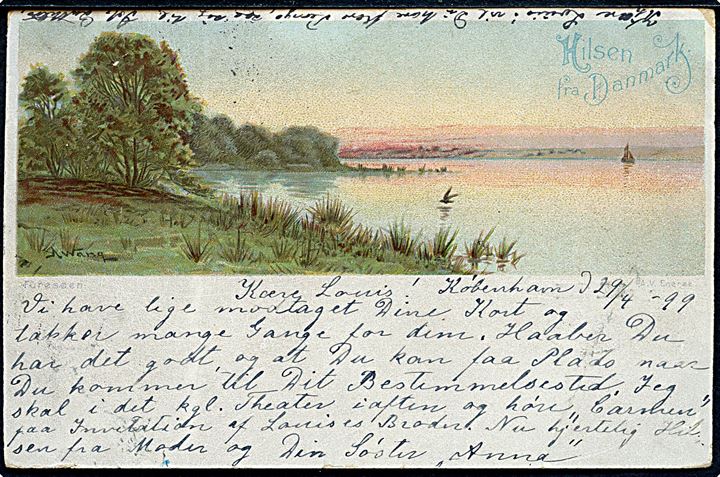 Kære Louis! vil Du
Hilsen
fra Danmark.
A Wang
Furesøen.
Kære Louis! København D 29/4 - 99
Vi have lige modtaget Dine Kort og
takker mange Gange for dem. Haaber Du
har det godt og at Du kan faa Plads naar
Du kommer til Dit Bestemmelsested. Jeg
skal i det kgl. Theater iaften og høre "Carmen"
faa Invitation af Louises Broder. Nu hjertelig Hil-
sen fra Moder og Din Søster "Anna"